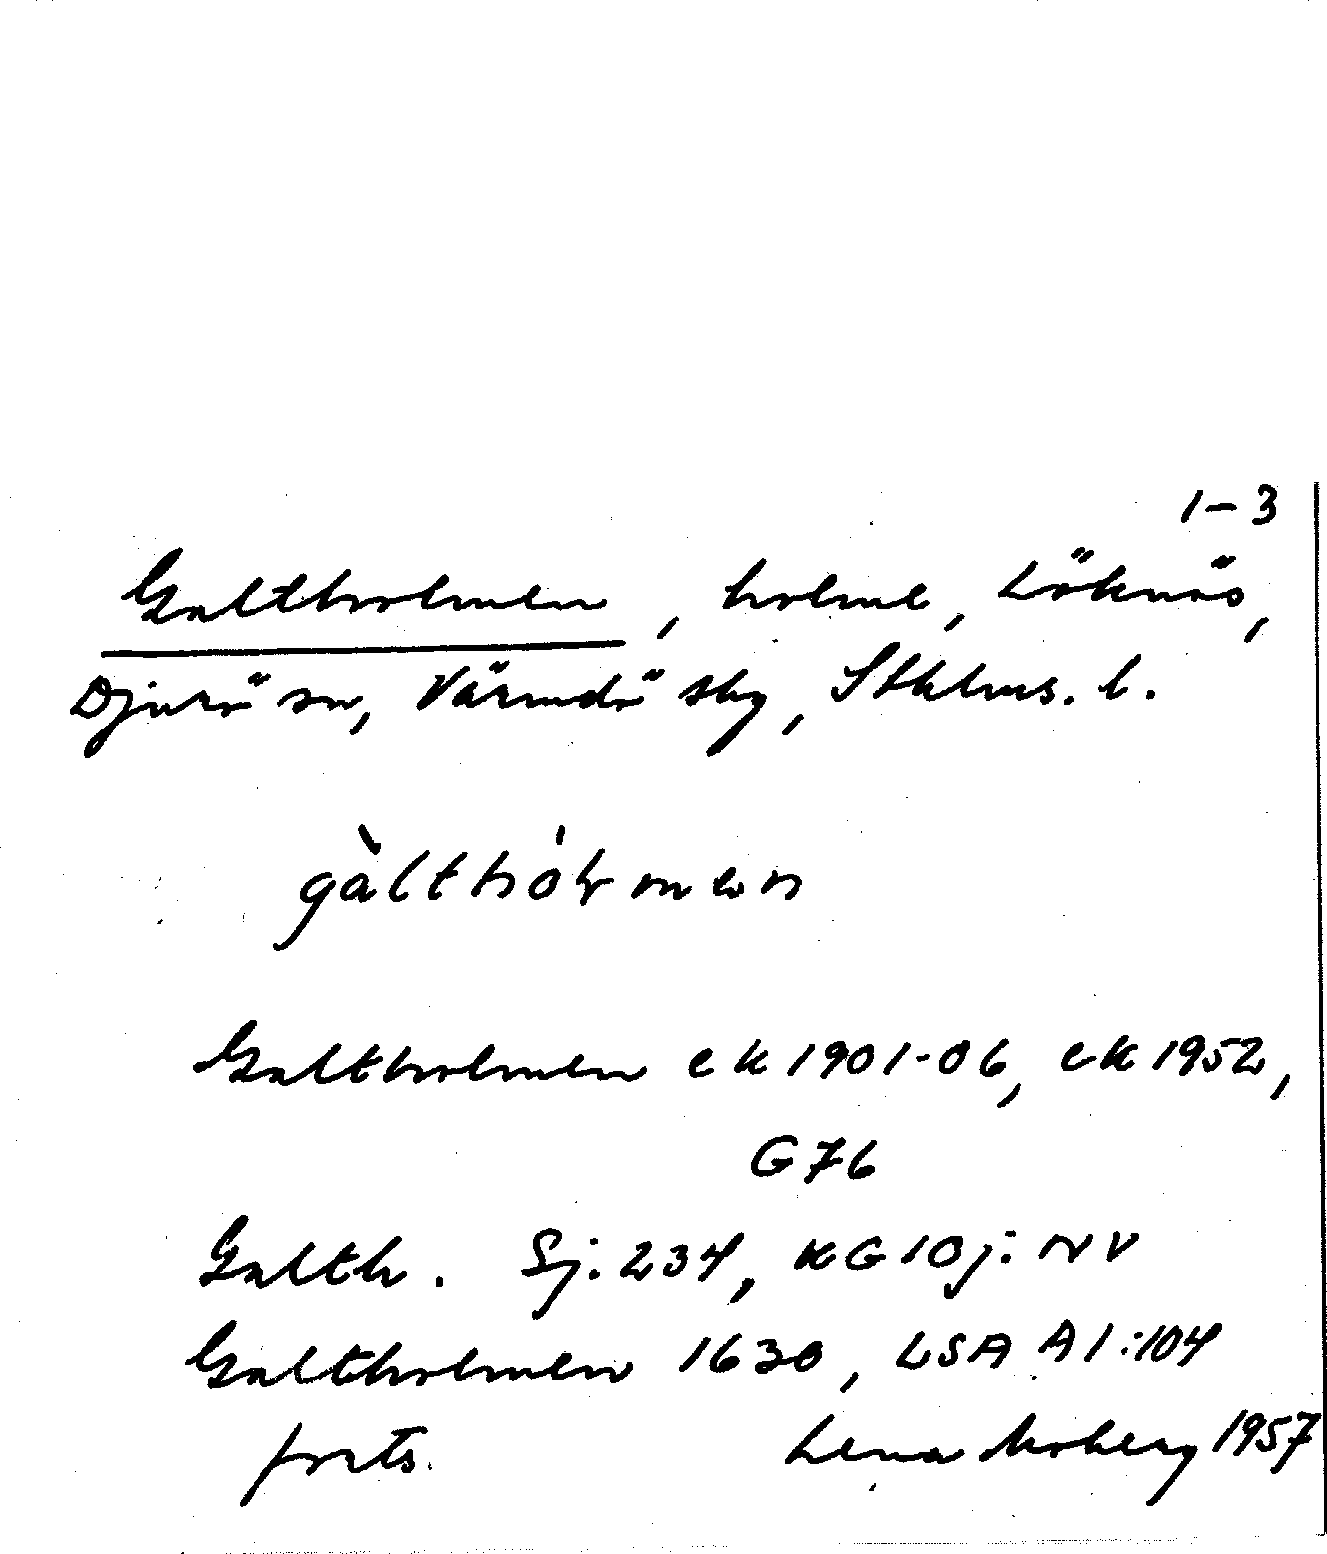 1-3
Galtholmen, holme, Löknäs,
Djurö sn, Värmdö skg, Sthlms. l.
gàlthól men
Galtholmen ek 1901-06, ek 1952,
G76
Galth. Sj: 234, KG 10j: NV
Galtholmen 1630, LSA A1:104
forts. Lena Moberg 1957